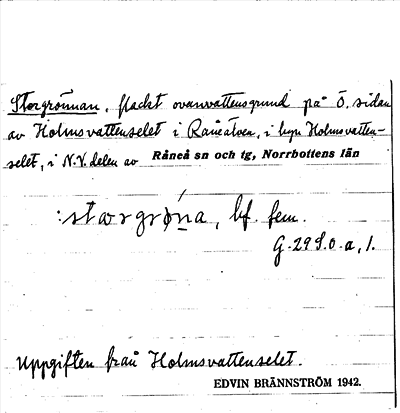 Storgrönnan, flackt ovanvattensgrund på Ö. sidan
av Holmsvattenselet i Råneälven, i byn Holmsvatten-
selet, i N.V. delen av Råneå sn och tg, Norrbottens län
:storgrö́na, bf. fem.
G-29 S.o-a, 1.
Uppgiften från Holmsvattenselet.
EDVIN BRÄNNSTRÖM 1942.